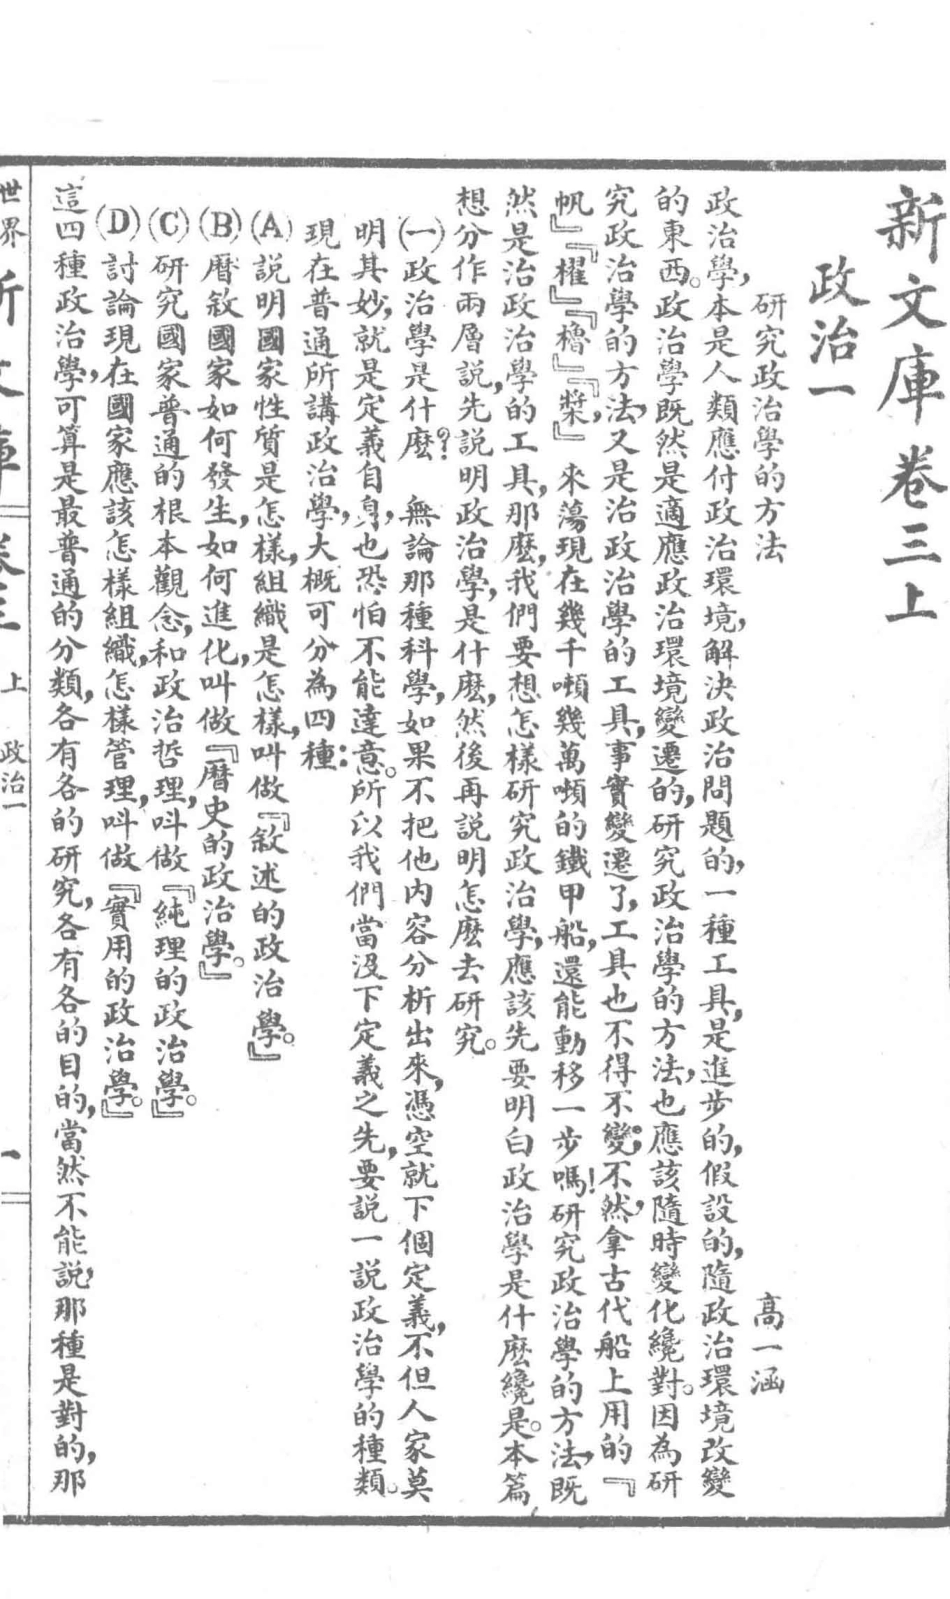 新文庫卷三上
政治一
研究政治學的方法
高一涵
政治學，本是人類應付政治環境，解決政治問題的，一種工具，是進步的，假設的，隨政治環境改變
的東西。政治學既然是適應政治環境變遷的，研究政治學的方法，也應該隨時變化纔對。因為研
究政治學的方法，又是治政治學的工具，事實變遷了，工具也不得不變；不然，拿古代船上用的『
帆』『櫂』『櫓』『槳』來蕩現在幾千噸幾萬噸的鐵甲船，還能動移一步嗎！研究政治學的方法，既
然是治政治學的工具，那麼，我們要想怎樣研究政治學，應該先要明白政治學是什麼纔是。本篇
想分作兩層說，先說明政治學，是什麼，然後再說明怎麼去研究。
(一)政治學是什麼？　無論那種科學，如果不把他內容分析出來，憑空就下個定義，不但人家莫
明其妙，就是定義自身，也恐怕不能達意。所以我們當沒下定義之先，要說一說政治學的種類。
現在普通所講政治學，大概可分為四種：
(A)說明國家性質是怎樣，組織是怎樣，叫做『敘述的政治學。』
(B)曆敘國家如何發生，如何進化，叫做『曆史的政治學。』
(C)研究國家普通的根本觀念，和政治哲理，呌做『純理的政治學。』
(D)討論現在國家應該怎樣組織，怎樣管理，呌做『實用的政治學。』
這四種政治學，可算是最普通的分類，各有各的研究，各有各的目的，當然不能說，那種是對的，那
世界
新文庫
卷三
上
政治一
一